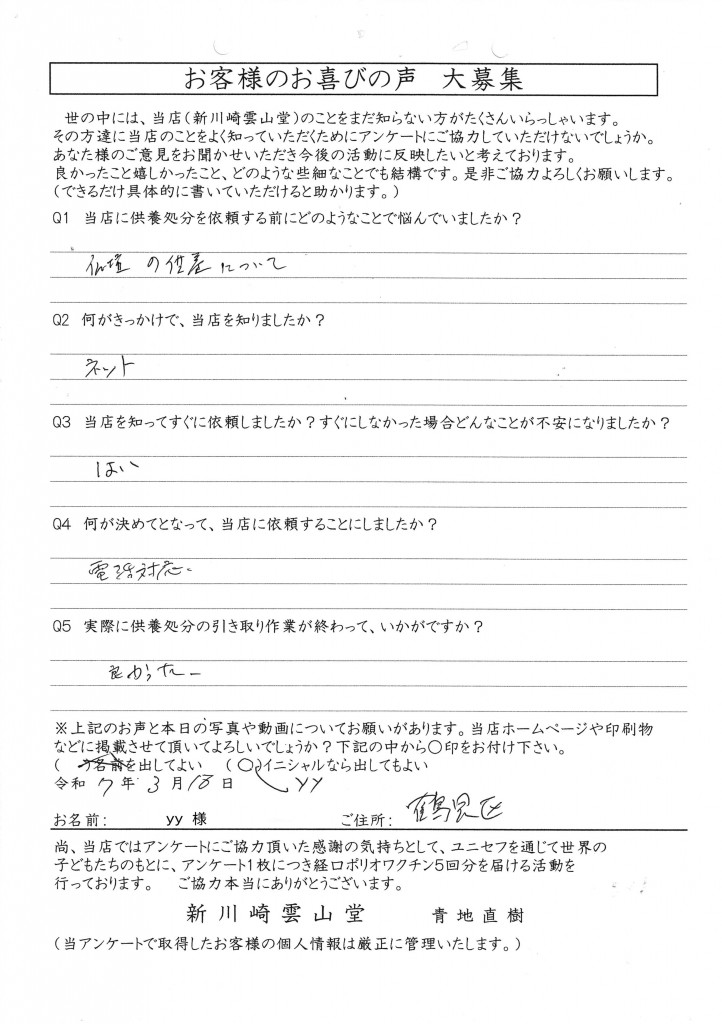 お客様のお喜びの声 大募集
世の中には、当店(新川崎雲山堂)のことをまだ知らない方がたくさんいらっしゃいます。
その方達に当店のことをよく知っていただくためにアンケートにご協力していただけないでしょうか。
あなた様のご意見をお聞かせいただき今後の活動に反映したいと考えております。
良かったこと嬉しかったこと、どのような些細なことでも結構です。是非ご協力よろしくお願いします。
(できるだけ具体的に書いていただけると助かります。)
Q1 当店に供養処分を依頼する前にどのようなことで悩んでいましたか?
仏壇の について
Q2 何がきっかけで、当店を知りましたか?
ネット
Q3 当店を知ってすぐに依頼しましたか?すぐにしなかった場合どんなことが不安になりましたか?
はい
Q4 何が決めてとなって、当店に依頼することにしましたか?
電話対応
Q5 実際に供養処分の引き取り作業が終わって、いかがですか?
良かった
※上記のお声と本日の写真や動画についてお願いがあります。当店ホームページや印刷物
などに掲載させて頂いてよろしいでしょうか?下記の中から〇印をお付け下さい。
( )名前を出してよい (〇)イニシャルなら出してもよい
令和 7 年 3 月 18 日 YY
お名前: yy 様 ご住所: 鶴見区
尚、当店ではアンケートにご協力頂いた感謝の気持ちとして、ユニセフを通じて世界の
子どもたちのもとに、アンケート1枚につき経口ポリオワクチン5回分を届ける活動を
行っております。 ご協力本当にありがとうございます。
新川崎雲山堂 青地直樹
(当アンケートで取得したお客様の個人情報は厳正に管理いたします。)